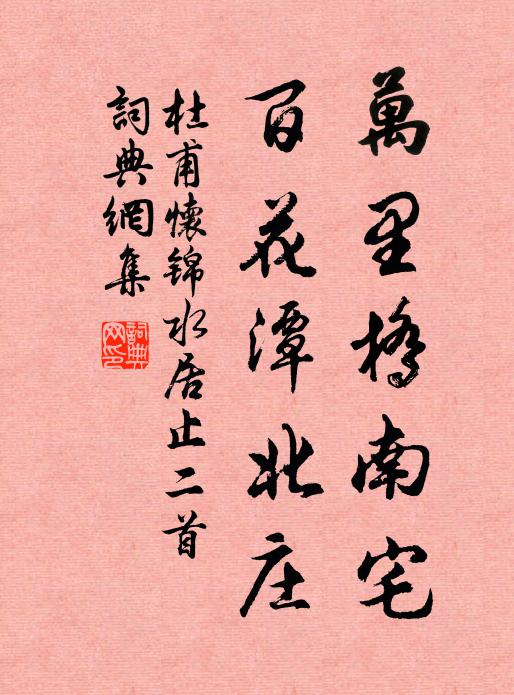 萬里橋南宅
百花潭北庄
杜甫懷锦水居止二首
詞典網集
詞典網印